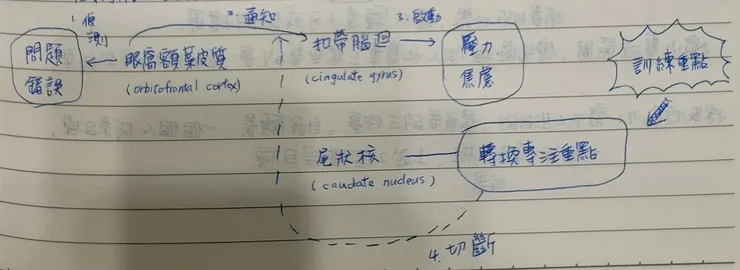 1. 偵測
2. 通知
3. 啟動
問題
錯誤
眼窩額葉皮質
(orbitofrontal cortex)
扣帶腦迴
(cingulate gyrus)
壓力
焦慮
訓練重點
尾狀核
(caudate nucleus)
轉換專注重點
4. 切斷